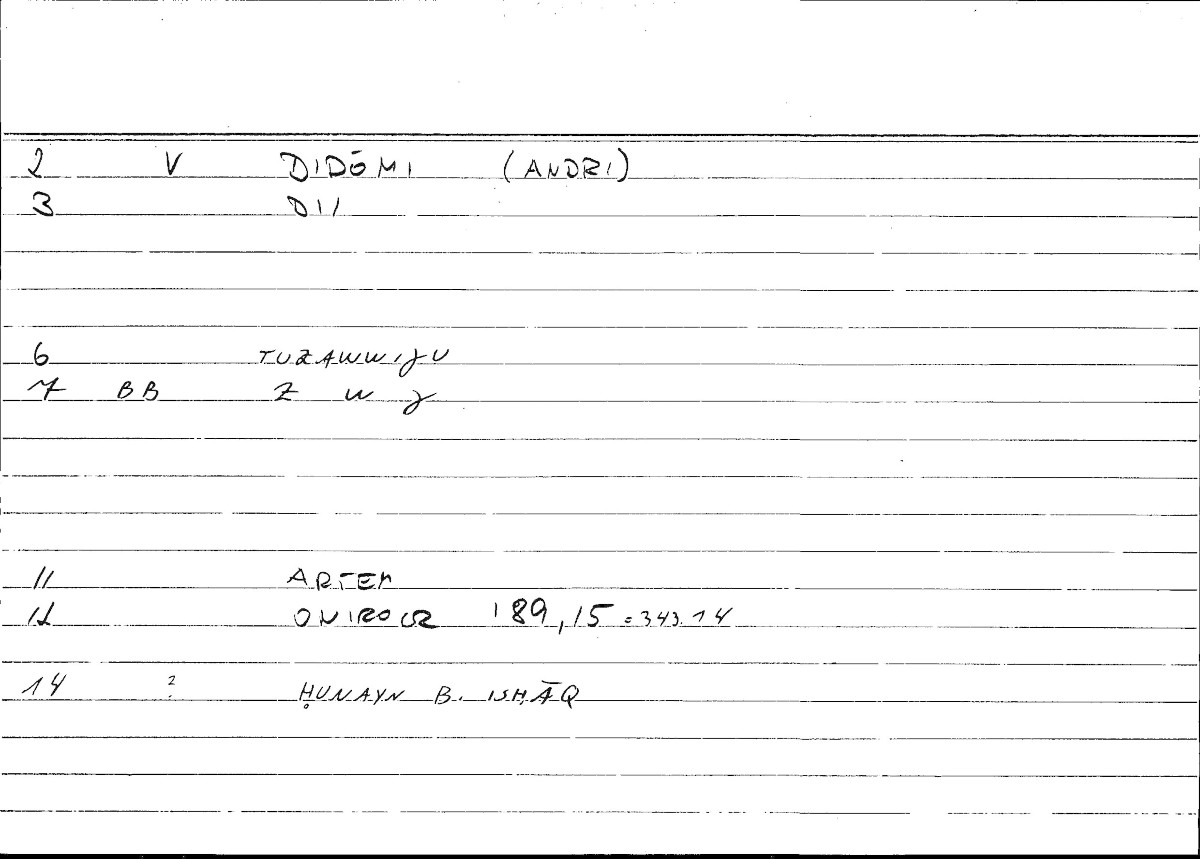 2 V DIDŌMI (ANDRI)
3 DI/
6 TUZAWWIJU
7 BB Z W J
11 ARTEM
12 ONIROCR 189,15 = 343.14
14 ? ḤUNAYN B. ISḤĀQ